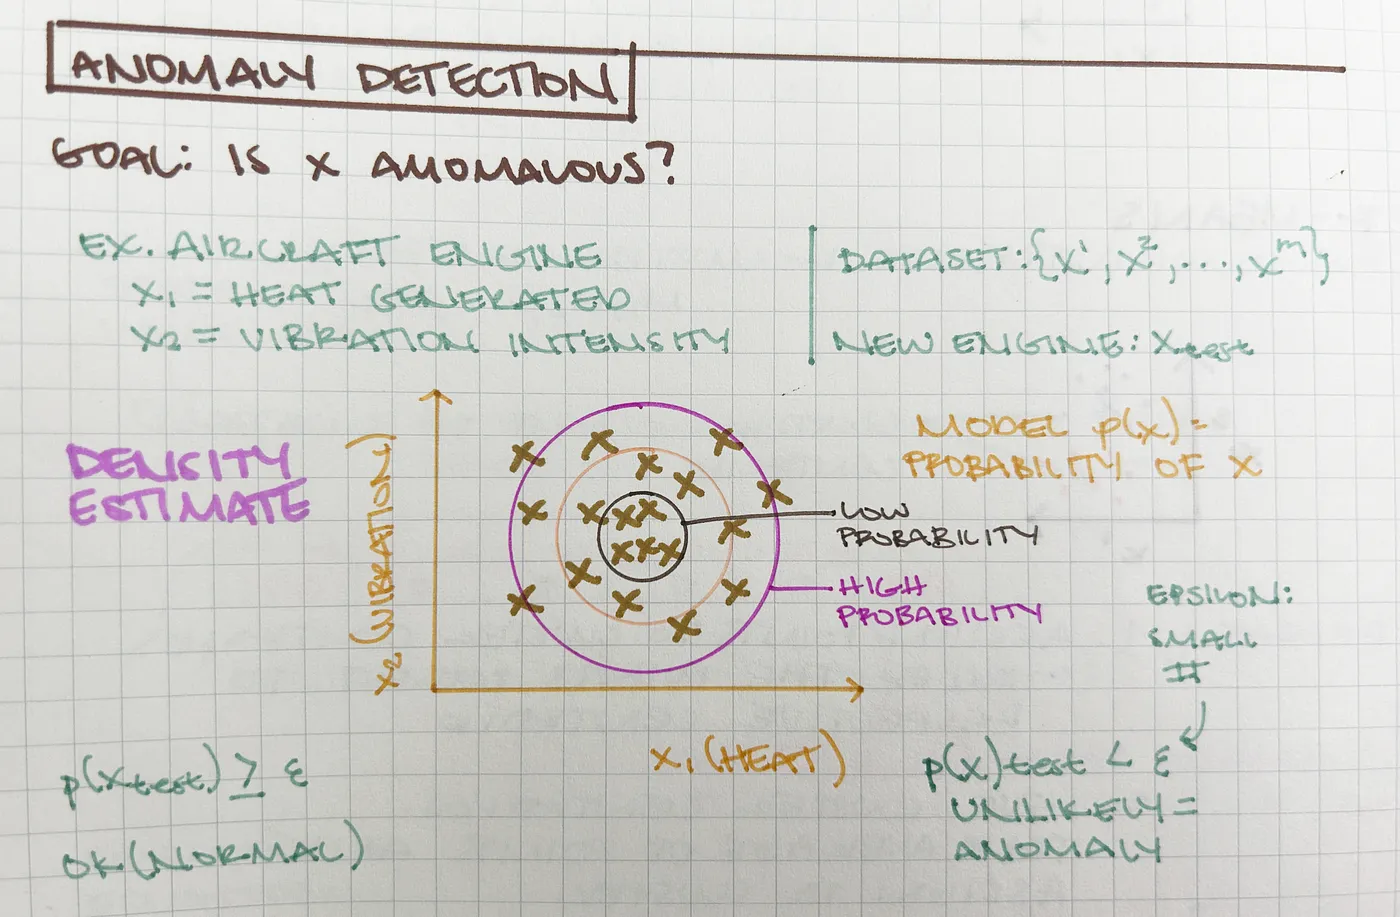 ANOMALY DETECTION
GOAL: IS X ANOMALOUS?
EX. AIRCRAFT ENGINE
X₁ = HEAT GENERATED
X₂ = VIBRATION INTENSITY
DATASET: {X¹, X², ..., Xᵐ}
NEW ENGINE: Xtest
DENSITY
ESTIMATE
X₂ (VIBRATION)
X₁ (HEAT)
MODEL p(x) =
PROBABILITY OF X
LOW
PROBABILITY
HIGH
PROBABILITY
EPSILON:
SMALL
#
p(Xtest) ≥ ε
OK (NORMAL)
p(x)test < ε
UNLIKELY =
ANOMALY